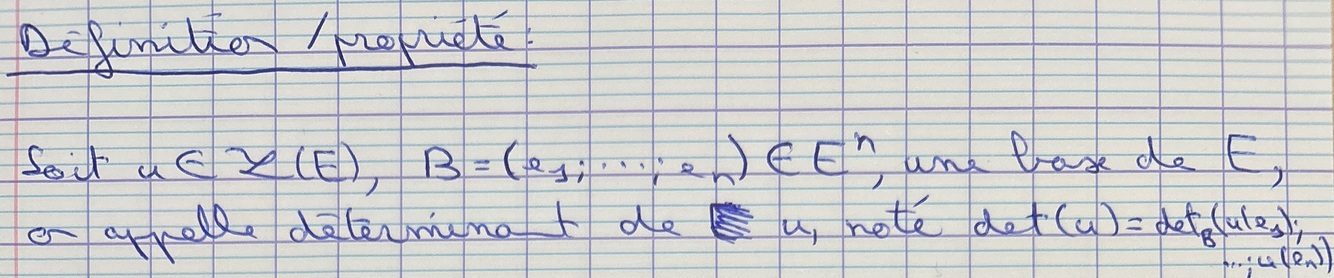 Définition / propriété :
Soit u ∈ ℒ(E), B = (e₁; ...; eₙ) ∈ Eⁿ, une base de E,
on appelle déterminant de u, noté det(u) = det_B(u(e₁);
...; u(eₙ))